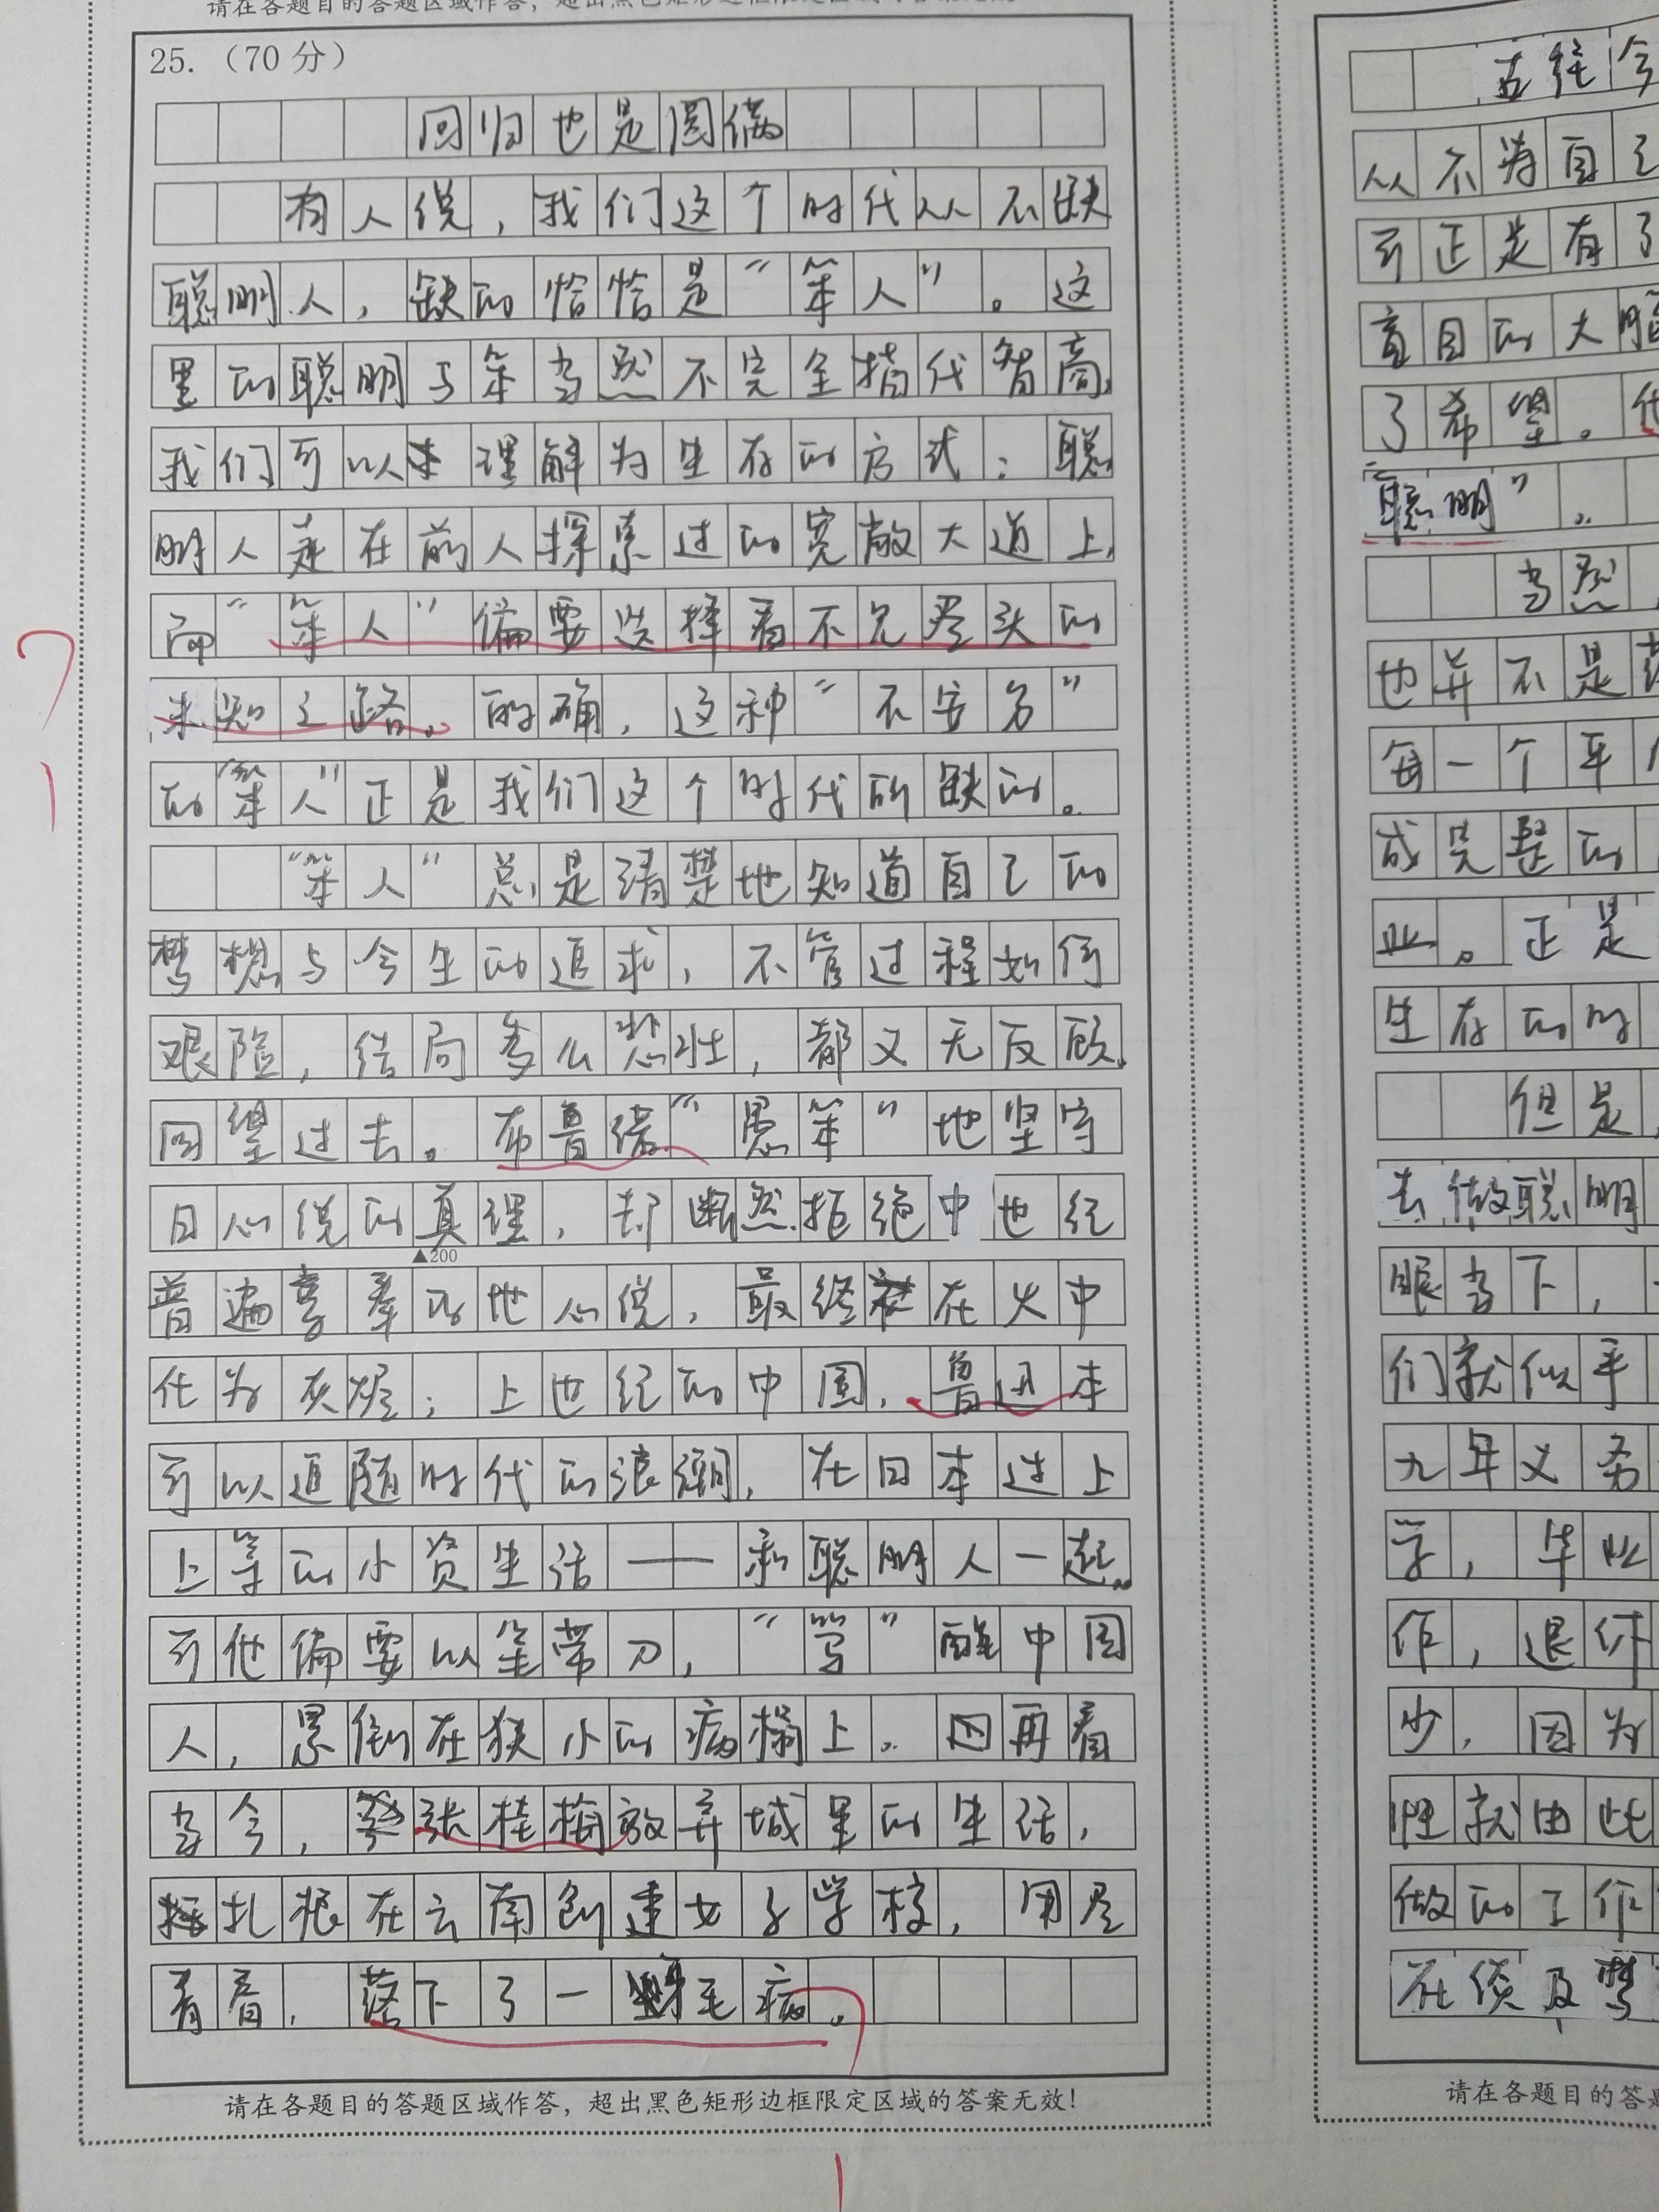 请在各题目的答题区域作答，超出黑色矩形边框限定区域的答案无效
25.（70分）
回归也是圆满
有人说，我们这个时代从不缺
聪明人，缺的恰恰是“笨人”。这
里的聪明与笨当然不完全指代智商，
我们可以来理解为生存的方式：聪
明人走在前人探索过的宽敞大道上，
而“笨人”偏要选择看不见尽头的
未知之路。的确，这种“不安分”
的“笨人”正是我们这个时代所缺的。
“笨人”总是清楚地知道自己的
梦想与今生的追求，不管过程如何
艰险，结局多么悲壮，都义无反顾，
回望过去。布鲁诺“愚笨”地坚守
日心说的真理，却断然拒绝中世纪
▲200
普遍尊奉的地心说，最终在火中
化为灰烬；上世纪的中国，鲁迅本
可以追随时代的浪潮，在日本过上
上等的小资生活——和聪明人一起。
可他偏要以笔带刀，“写”醒中国
人，累倒在狭小的病榻上。回再看
当今，张桂梅放弃城里的生活，
扎根在云南创建女子学校，用尽
青春，落下了一身毛病。
请在各题目的答题区域作答，超出黑色矩形边框限定区域的答案无效！
古往今
从不为自己
可正是有了
盲目的大脑
了希望。
聪明”。
当然
也并不是
每一个平
成完整的
业。正是
生存的时
但是，
去做聪明
眼当下，
们就似乎
九年义务
学，毕业
作，退休
少，因为
性就由此
做的工作
在谈及梦
请在各题目的答题